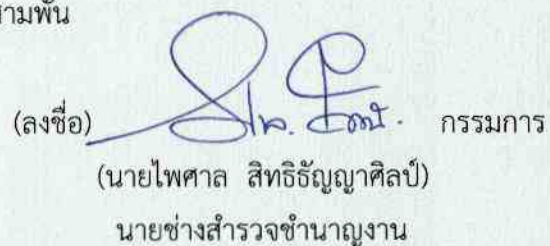 สามพัน
(ลงชื่อ) กรรมการ
(นายไพศาล สิทธิธัญญาศิลป์)
นายช่างสำรวจชำนาญงาน